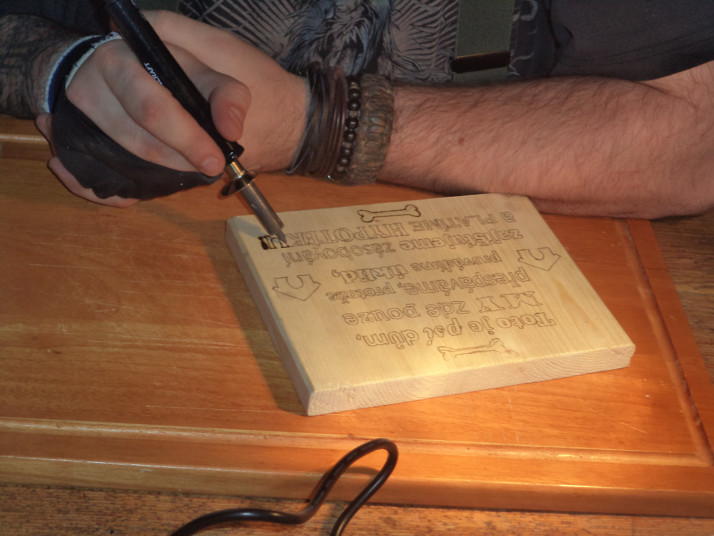 Toto je psí dům,
MY zde pouze
přespáváme, protože
provádíme úklid,
zajišťujeme zásobování
a PLATÍME HYPOTÉKU